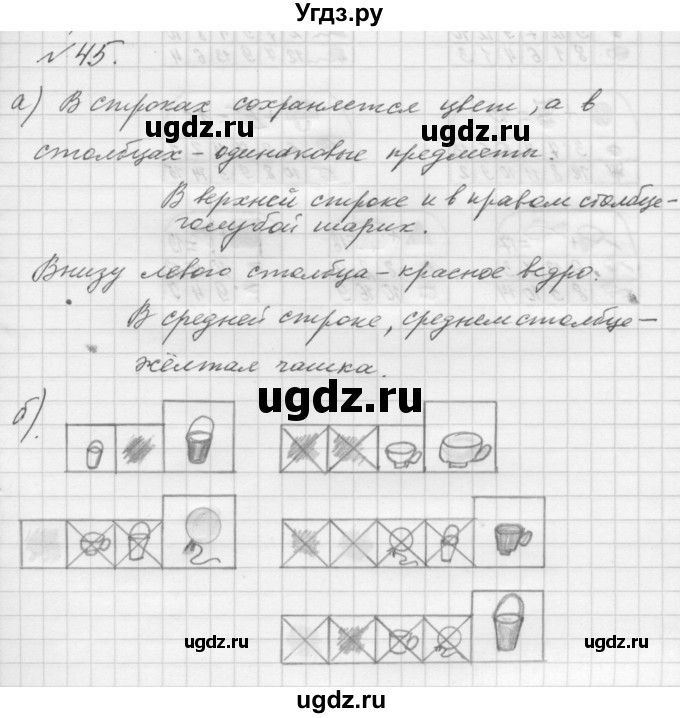 Угдз.ру
№45.
а) В строках сохраняется цвет, а в
ugdz.ru
столбцах - одинаковые предметы.
ugdz.ru
В верхней строке и в правом столбце -
голубой шарик.
Внизу левого столбца - красное ведро.
В средней строке, среднем столбце -
жёлтая чашка.
ugdz.ru
б)
ugdz.ru
ugdz.ru
ugdz.ru
ugdz.ru
ugdz.ru